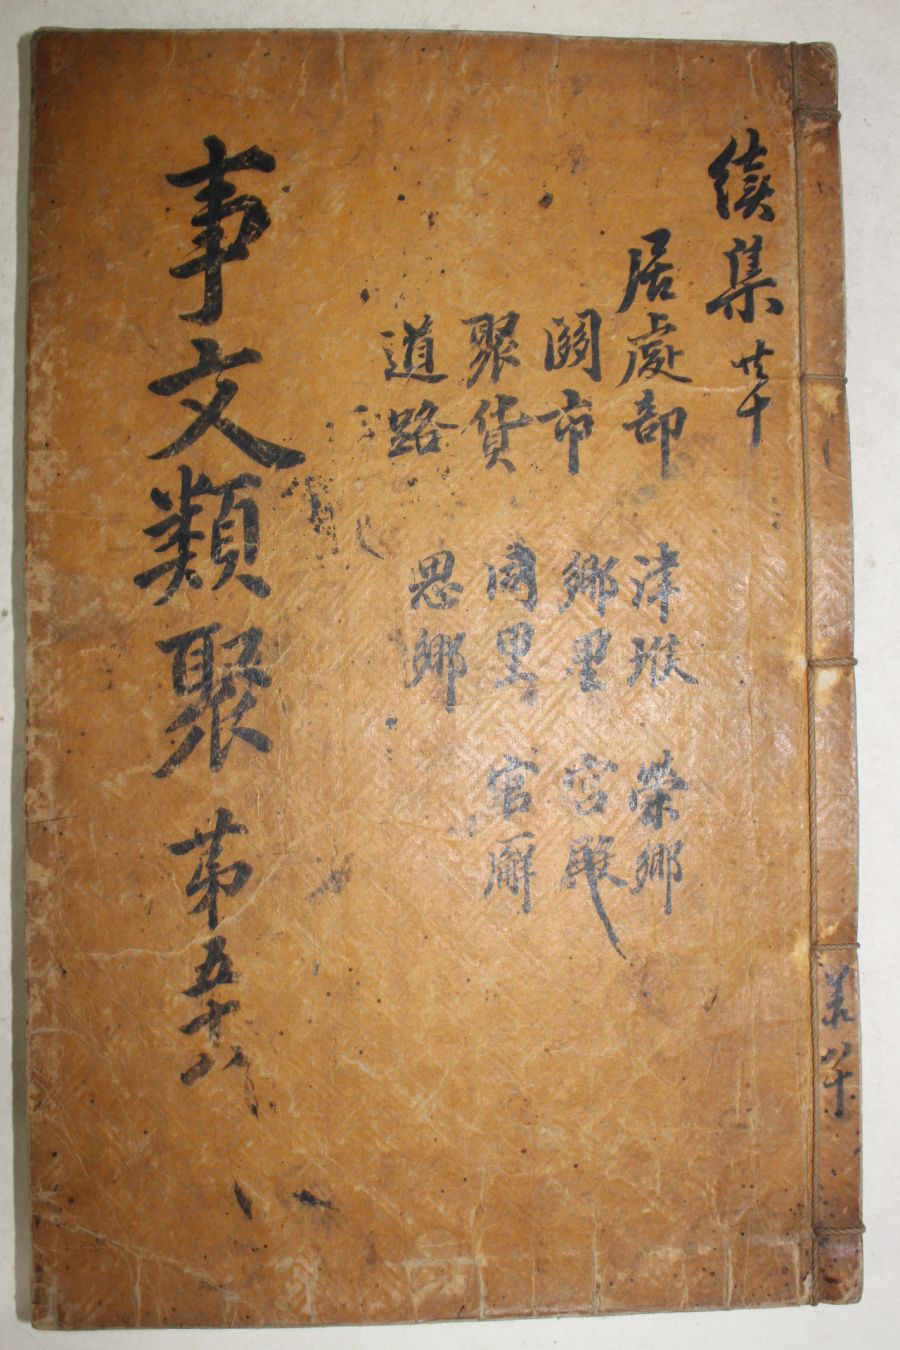 續集
居處部 津堠 榮鄉
關市 鄉里 宮殿
聚貨 里 官廨
道路 思鄉
事文類聚 第五十八